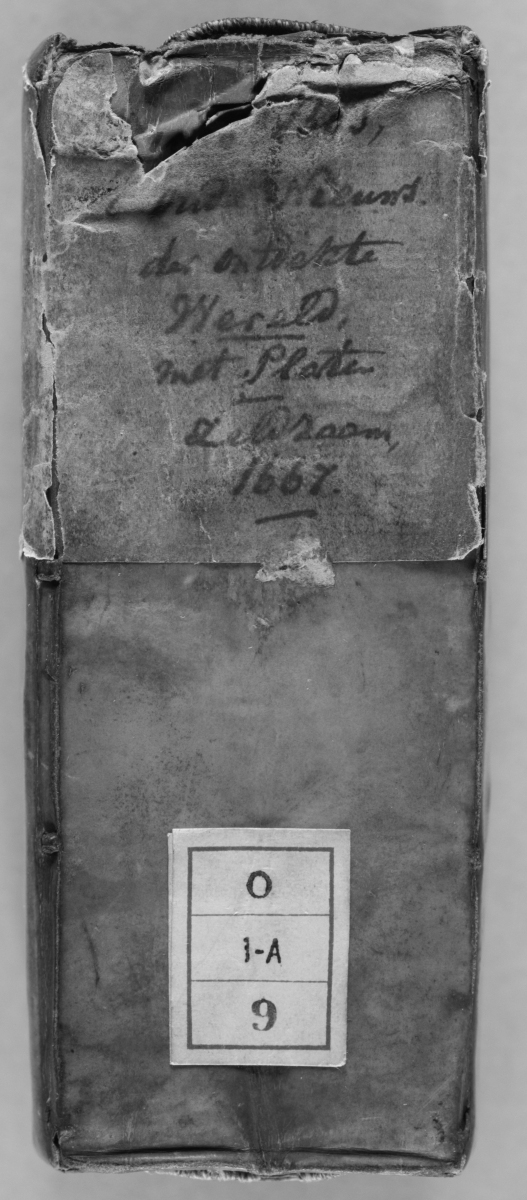 Nieuws.
der ontdekte
Wereld,
met Platen
Zeldzaam,
1667.
0
1-A
9